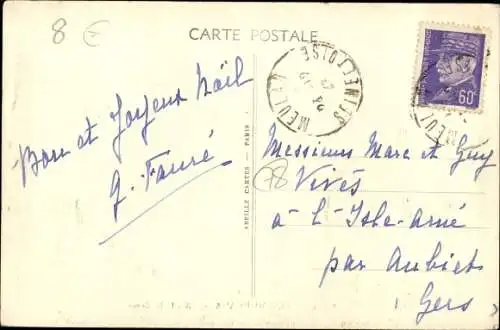 8
CARTE POSTALE
MEULAN
SEINE ET OISE
60c
Bon et Joyeux Noël
G. Fauré
ABEILLE CARTES - PARIS
Messieurs Marc et Guy
78
Vivès
à l'Isle-Arné
par Aubiet
Gers